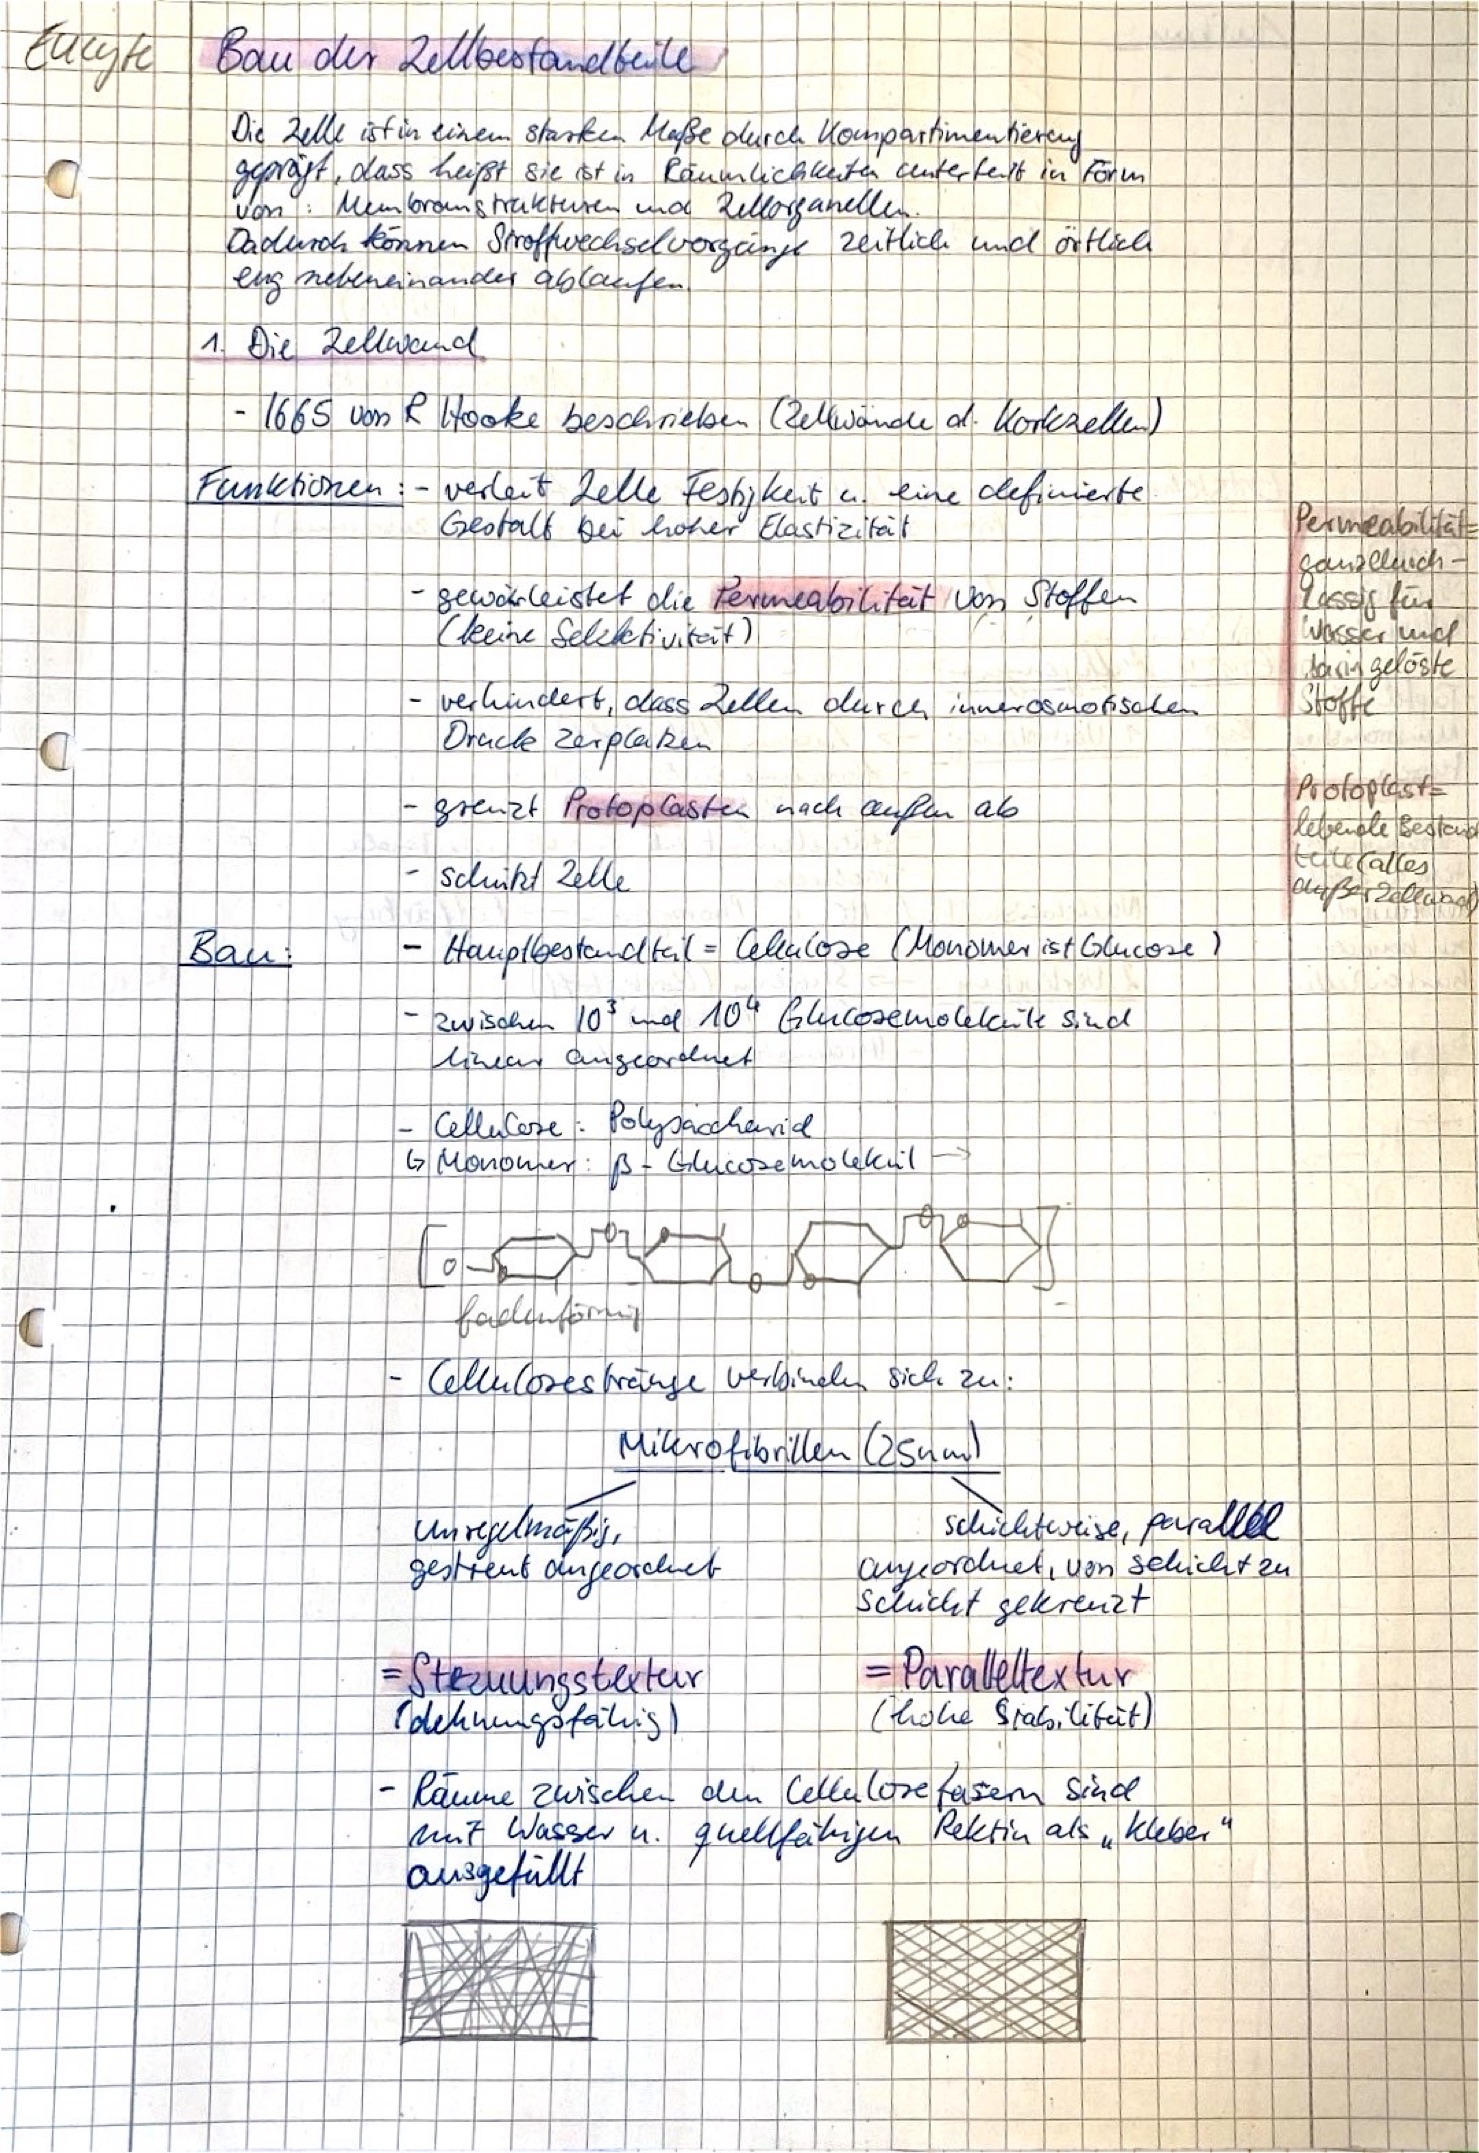 Eucyte
Bau der Zellbestandteile
Die Zelle ist in einem starken Maße durch Kompartimentierung
geprägt, dass heißt sie ist in Räumlichkeiten unterteilt in Form
von: Membranstrukturen und Zellorganellen.
Dadurch können Stoffwechselvorgänge zeitlich und örtlich
eng nebeneinander ablaufen.
1. Die Zellwand
- 1665 von R Hooke beschrieben (Zellwände d. Korkzellen)
Funktionen: - verleit Zelle Festigkeit u. eine definierte
Gestalt bei hoher Elastizität
- gewärleistet die Permeabilität von Stoffen
(keine Selektivität)
- verhindert, dass Zellen durch innerosmotischen
Druck zerplatzen
- grenzt Protoplasten nach außen ab
- schützt Zelle
Permeabilität=
ganzdurch-
lässig für
Wasser und
darin gelöste
Stoffe
Protoplast=
lebende Bestand
teile (alles
außer Zellwand)
Bau: - Hauptbestandteil = Cellulose (Monomer ist Glucose)
- zwischen 10³ und 10⁴ Glucosemoleküle sind
linear angeordnet
- Cellulose: Polysaccharid
↳ Monomer: β - Glucosemolekül →
[O O O O O O O O]
fadenförmig
- Cellulosestränge verbinden sich zu:
Mikrofibrillen (25nm)
unregelmäßig,
gestreut angeordnet
= Streuungstextur
(dehnungsfähig)
schichtweise, parallel
angeordnet, von Schicht zu
Schicht gekreuzt
= Paralleltextur
(hohe Stabilität)
- Räume zwischen den Cellulosefasern sind
mit Wasser u. quellfähigen Pektin als „Kleber"
ausgefüllt